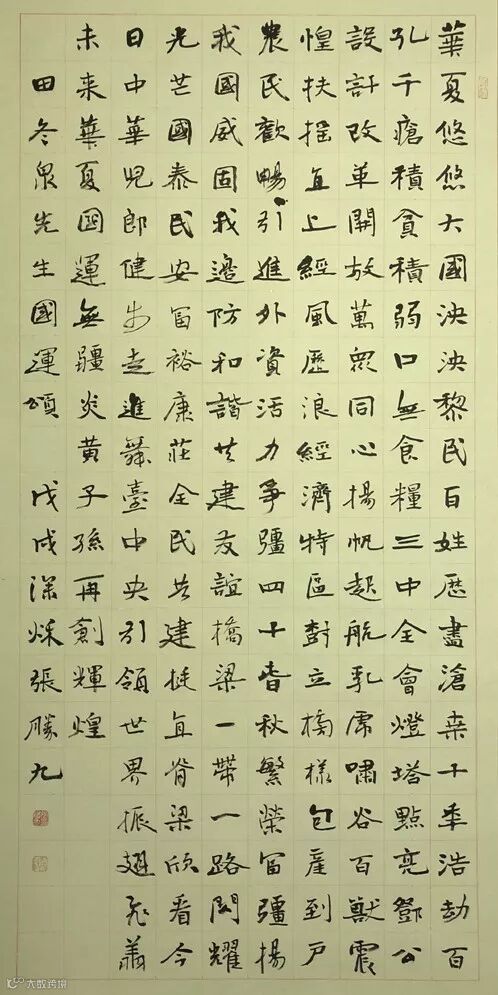 華夏悠悠大國泱泱黎民百姓歷盡滄桑十年浩劫百
孔千瘡積貧積弱口無食糧三中全會燈塔點亮鄧公
設計改革開放萬眾同心揚帆起航乳虎嘯谷百獸震
惶扶搖直上經風歷浪經濟特區樹立榜樣包產到戶
農民歡暢引進外資活力爭彊四十春秋繁榮富彊揚
我國威固我邊防和諧共建友誼橋梁一帶一路閃耀
光芒國泰民安富裕康莊全民共建挺直脊梁欣看今
日中華兒郎健步走進舞臺中央引領世界振翅飛翔
未来華夏國運無疆炎黃子孫再創輝煌
田冬泉先生國運頌 戊戌深秋張勝九
大数跨境